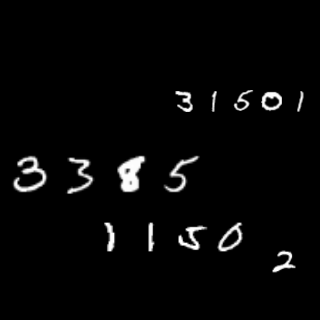 31501
3385
1150
2